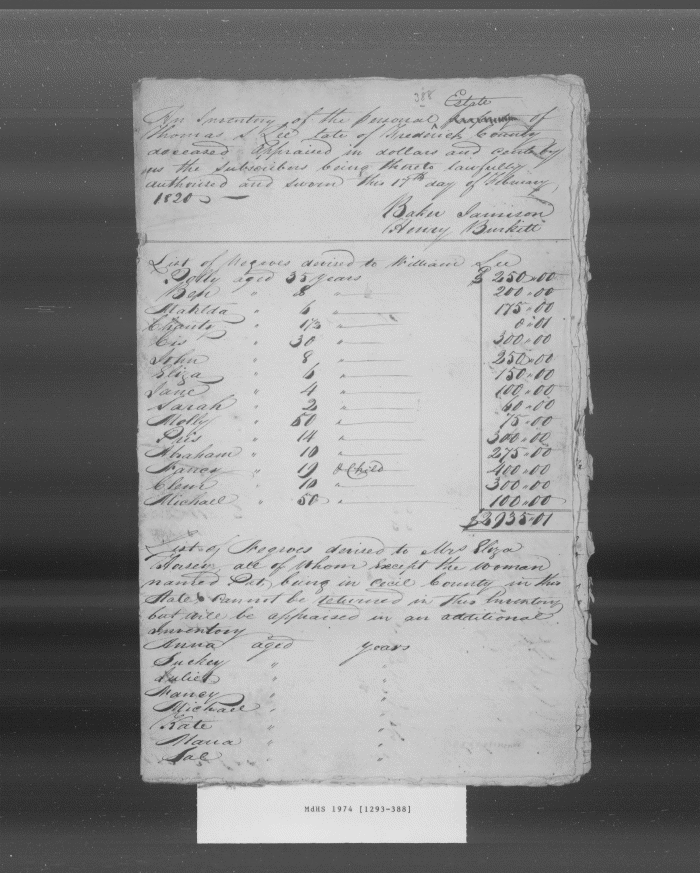 388 Estate
An Inventory of the personal of
Thomas S Lee late of Frederick County
deceased appraised in dollars and cents by
us the Subscribers being thereto lawfully
authorised and sworn this 17th day of February
1820
Baker Jamison
Henry Burkitt
List of Negroes devised to William Lee
Polly aged 35 years $ 250.00
Ben " 8 " 200.00
Matilda " 6 " 175.00
Charity " 73 " 0.01
Cis " 30 " 300.00
John " 8 " 250.00
Eliza " 6 " 150.00
Jane " 4 " 100.00
Sarah " 2 " 60.00
Molly " 50 " 75.00
Pris " 14 " 300.00
Abraham " 10 " 275.00
Nancy " 19 " & Child 400.00
Clem " 10 " 300.00
Michael " 50 " 100.00
$2935.01
List of Negroes devised to Mrs Eliza
all of whom except the woman
named Pat, being in Cecil County in this
State & cannot be returned in this Inventory
but will be appraised in an additional
Inventory
Anna aged years
Suckey " "
Juliet " "
Nancy " "
Michael " "
Kate " "
Maria " "
Sal " "
MdHS 1974 [1293-388]